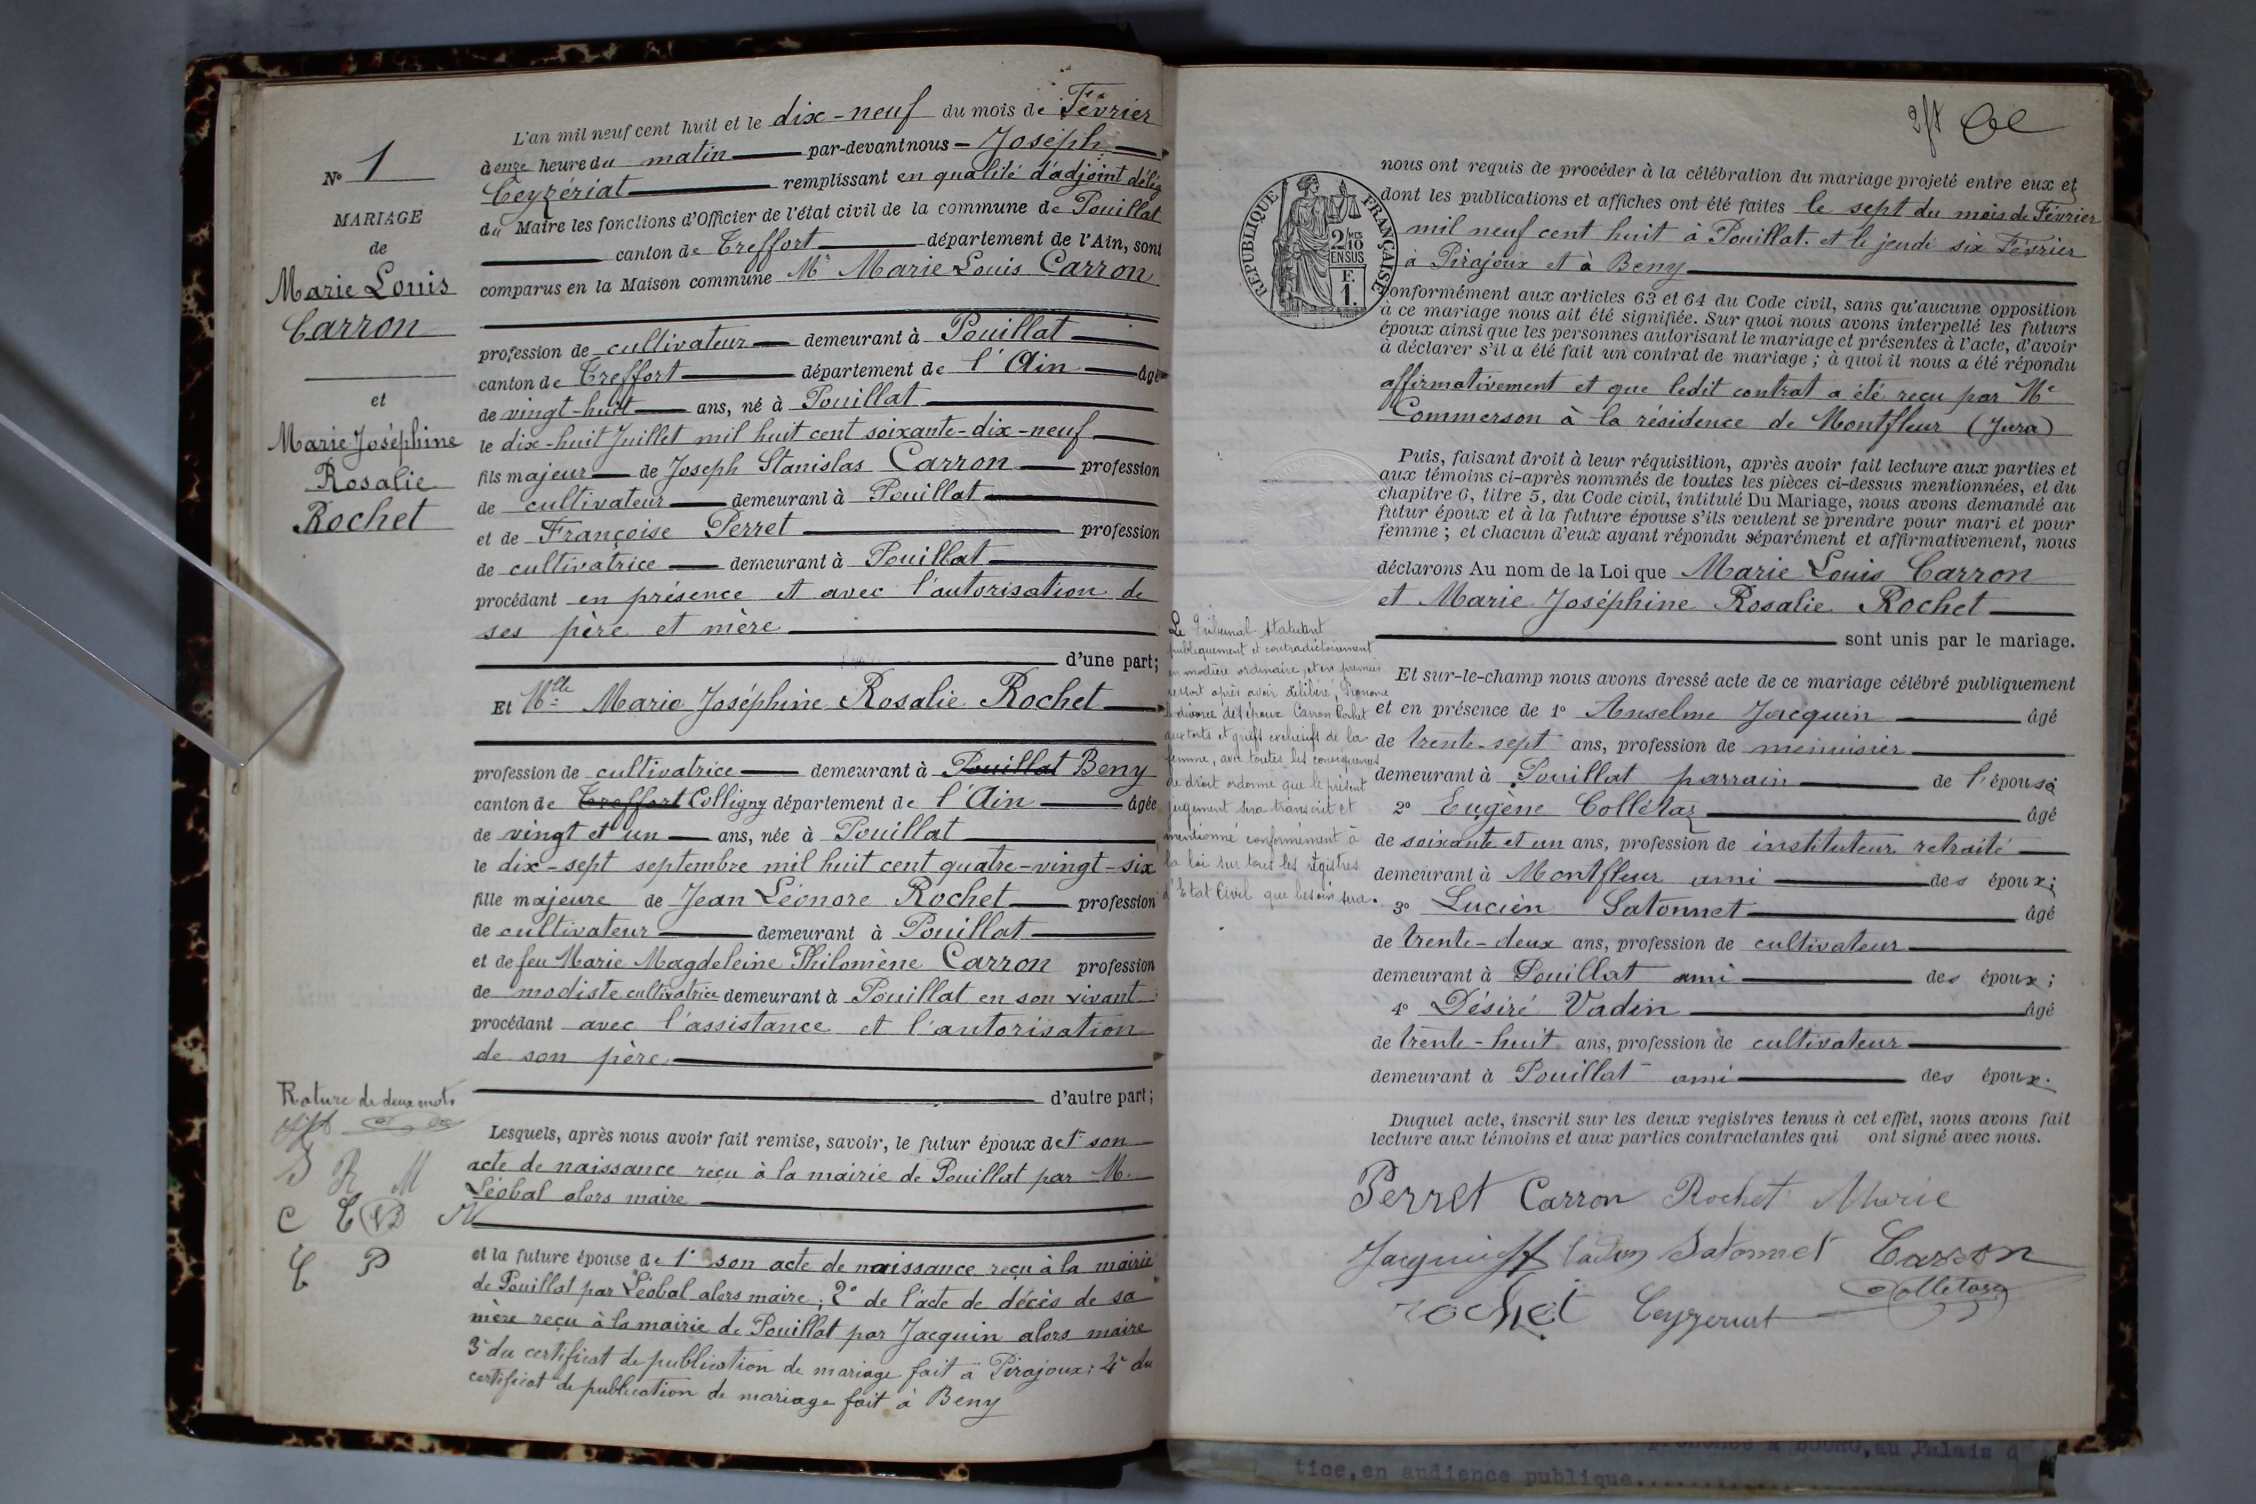 N° 1
MARIAGE
de
Marie Louis
Carron
et
Marie Joséphine
Rosalie
Rochet
Rature de deux mots
L'an mil neuf cent huit et le dix-neuf du mois de Février
à onze heure du matin par-devant nous Joseph
Ceyzériat remplissant en qualité d'adjoint délég
du Maire les fonctions d'Officier de l'état civil de la commune de Pouillat
canton de Treffort département de l'Ain, sont
comparus en la Maison commune Mr Marie Louis Carron
profession de cultivateur demeurant à Pouillat
canton de Treffort département de l'Ain âgé
de vingt-huit ans, né à Pouillat
le dix-huit Juillet mil huit cent soixante-dix-neuf
fils majeur de Joseph Stanislas Carron profession
de cultivateur demeurant à Pouillat
et de Françoise Perret profession
de cultivatrice demeurant à Pouillat
procédant en présence et avec l'autorisation de
ses père et mère
d'une part;
Et Mlle Marie Joséphine Rosalie Rochet
profession de cultivatrice demeurant à Pouillat Beny
canton de Treffort Colligny département de l'Ain âgée
de vingt et un ans, née à Pouillat
le dix-sept septembre mil huit cent quatre-vingt-six
fille majeure de Jean Léonore Rochet profession
de cultivateur demeurant à Pouillat
et de feu Marie Magdeleine Philomène Carron profession
de modiste cultivatrice demeurant à Pouillat en son vivant
procédant avec l'assistance et l'autorisation
de son père
d'autre part;
Lesquels, après nous avoir fait remise, savoir, le futur époux de 1° son
acte de naissance reçu à la mairie de Pouillat par M.
Léobal alors maire
et la future épouse de 1° son acte de naissance reçu à la mairie
de Pouillat par Léobal alors maire; 2° de l'acte de décès de sa
mère reçu à la mairie de Pouillat par Jacquin alors maire
3° du certificat de publication de mariage fait à Pirajoux; 4° du
certificat de publication de mariage fait à Beny
2/4
RÉPUBLIQUE FRANÇAISE
2/10
EN SUS
F.
1.
nous ont requis de procéder à la célébration du mariage projeté entre eux et
dont les publications et affiches ont été faites le sept du mois de Février
mil neuf cent huit à Pouillat. et le jeudi six Février
à Pirajoux et à Beny
conformément aux articles 63 et 64 du Code civil, sans qu'aucune opposition
à ce mariage nous ait été signifiée. Sur quoi nous avons interpellé les futurs
époux ainsi que les personnes autorisant le mariage et présentes à l'acte, d'avoir
à déclarer s'il a été fait un contrat de mariage; à quoi il nous a été répondu
affirmativement et que ledit contrat a été reçu par Me
Commerson à la résidence de Montfleur (Jura)
Puis, faisant droit à leur réquisition, après avoir fait lecture aux parties et
aux témoins ci-après nommés de toutes les pièces ci-dessus mentionnées, et du
chapitre 6, titre 5, du Code civil, intitulé Du Mariage, nous avons demandé au
futur époux et à la future épouse s'ils veulent se prendre pour mari et pour
femme; et chacun d'eux ayant répondu séparément et affirmativement, nous
déclarons Au nom de la Loi que Marie Louis Carron
et Marie Joséphine Rosalie Rochet
sont unis par le mariage.
Le Tribunal statutant
publiquement et contradictoirement
en matière ordinaire, et en premier
ressort après avoir délibéré, Prononce
le divorce des époux Carron Rochet
aux torts et griefs exclusifs de la
femme, avec toutes les conséquences
de droit ordonne que le présent
jugement sera transcrit et
mentionné conformément à
la loi sur tous les registres
d'Etat Civil que besoin sera.
Et sur-le-champ nous avons dressé acte de ce mariage célébré publiquement
et en présence de 1° Anselme Jacquin âgé
de trente-sept ans, profession de menuisier
demeurant à Pouillat parrain de l'épouse
2° Eugène Collétaz âgé
de soixante et un ans, profession de instituteur retraité
demeurant à Montfleur ami des époux;
3° Lucien Satonnet âgé
de trente-deux ans, profession de cultivateur
demeurant à Pouillat ami des époux;
4° Désiré Vadin âgé
de trente-huit ans, profession de cultivateur
demeurant à Pouillat ami des époux.
Duquel acte, inscrit sur les deux registres tenus à cet effet, nous avons fait
lecture aux témoins et aux parties contractantes qui ont signé avec nous.
Perret Carron Rochet Marie
Jacquin Vadin Satonnet Carron
Rochet Ceyzeriat Colletaz
BOURG, au Palais d
tice, en audience publique